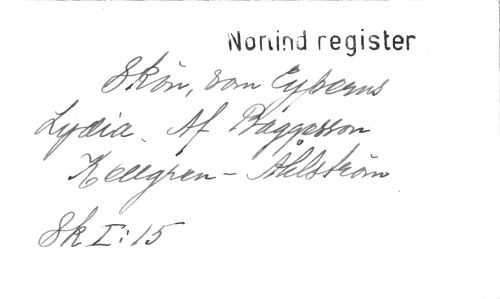 Norlind register
Skön, som Cyperns
Lydia. Af Baggesson
Kellgren - Åhlström
Sk I: 15